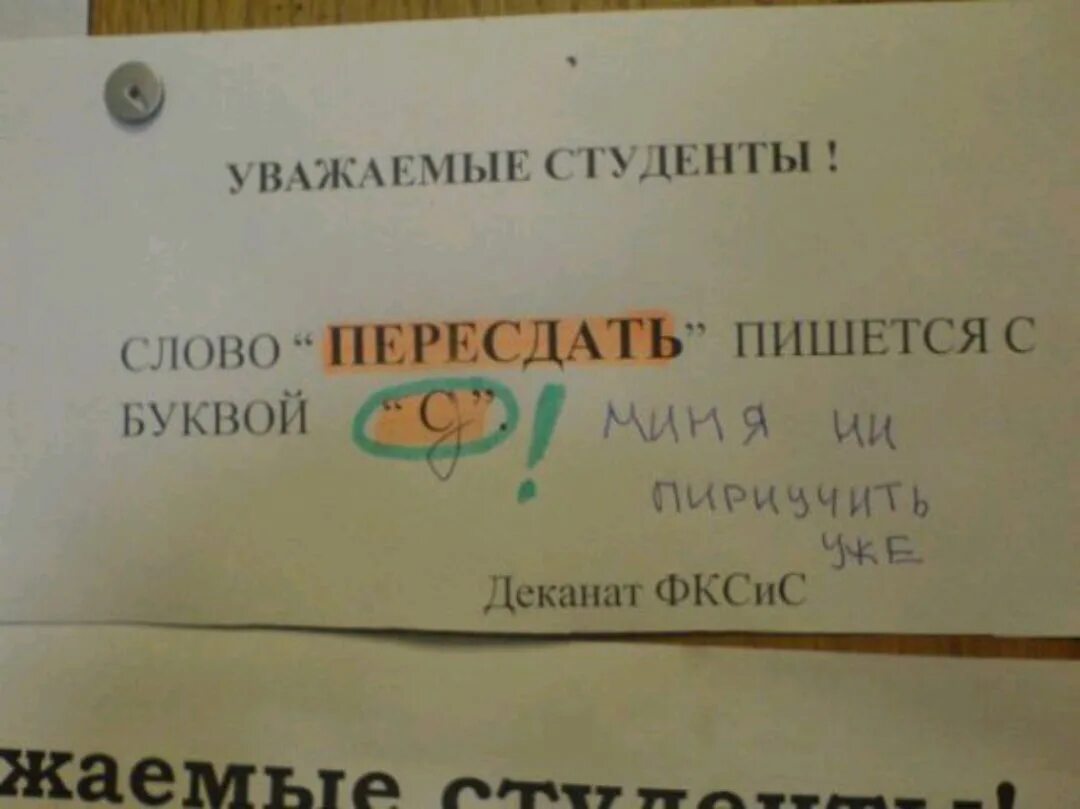 УВАЖАЕМЫЕ СТУДЕНТЫ !
СЛОВО “ ПЕРЕСДАТЬ” ПИШЕТСЯ С
БУКВОЙ “С”. !
МИНЯ НИ
ПИРИУЧИТЬ
УЖЕ
Деканат ФКСиС
жаемые студенты!